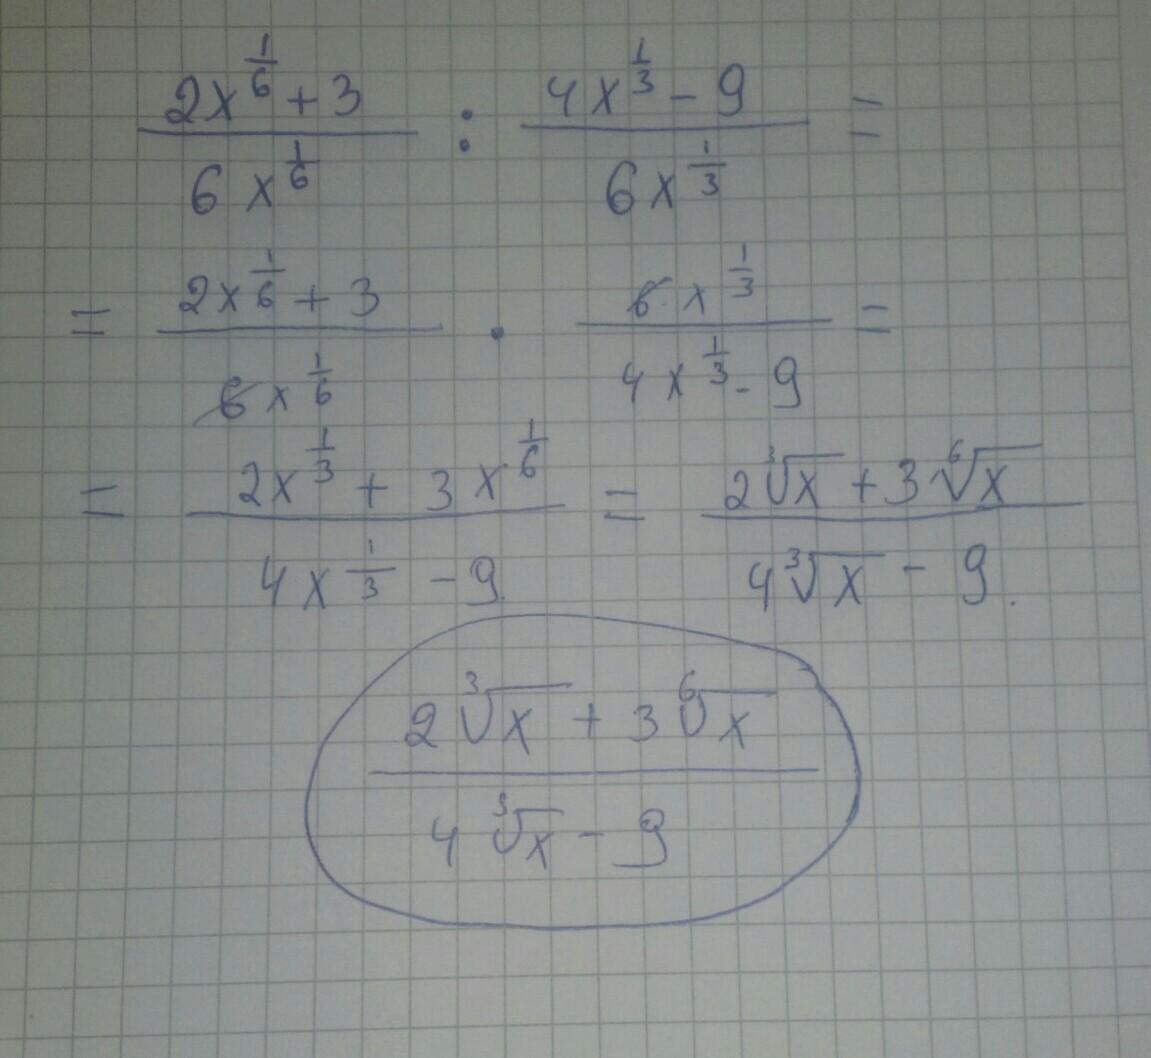 (2x^(1/6) + 3)/(6x^(1/6)) : (4x^(1/3) - 9)/(6x^(1/3)) =
= (2x^(1/6) + 3)/(6x^(1/6)) · (6x^(1/3))/(4x^(1/3) - 9) =
= (2x^(1/3) + 3x^(1/6))/(4x^(1/3) - 9) = (2∛x + 3⁶√x)/(4∛x - 9).
(2∛x + 3⁶√x)/(4∛x - 9)